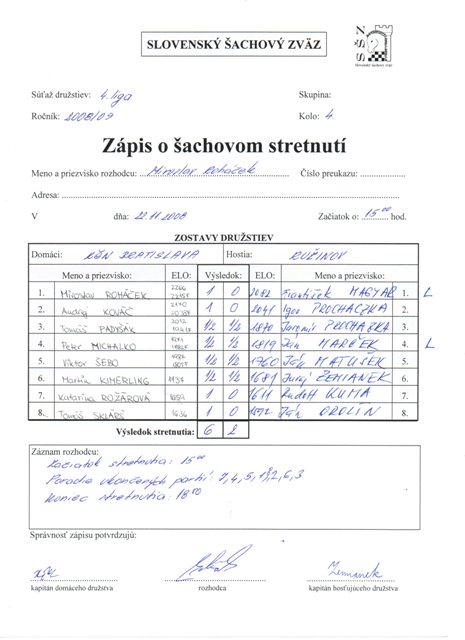 SLOVENSKÝ ŠACHOVÝ ZVÄZ
SŠZ
Slovenský šachový zväz
Súťaž družstiev: 4. liga Skupina:
Ročník: 2008/09 Kolo: 4.
Zápis o šachovom stretnutí
Meno a priezvisko rozhodcu: Miroslav Roháček Číslo preukazu:
Adresa:
V dňa: 22.11.2008 Začiatok o: 15 00 hod.
ZOSTAVY DRUŽSTIEV
Domáci: BRATISLAVA Hostia: RUŽINOV
Meno a priezvisko: ELO: Výsledok: ELO: Meno a priezvisko:
1. Miroslav ROHÁČEK 1 0 2082 František MAGYAR 1. L
2. Andrej KOVÁČ 1 0 2041 Igor PROCHÁCZKA 2.
3. Tomáš PADYŠÁK ½ ½ 1870 Jaromír PROCHÁZKA 3.
4. Peter MICHALKO ½ ½ 1819 Ján MARČEK 4. L
5. Viktor ŠEBO ½ ½ 1760 Ján MATUŠEK 5.
6. Martin KIMERLING ½ ½ 1681 Juraj ZEMIANEK 6.
7. Katarína ROŽÁROVÁ 1 0 1611 Rudolf KUMA 7.
8. Tomáš SKLÁRŠ 1636 1 0 Ján OROLÍN 8.
Výsledok stretnutia: 6 2
Záznam rozhodcu:
Začiatok stretnutia: 15 00
Poradie ukončených partií: 7, 4, 5, 1, 8, 2, 6, 3
Koniec stretnutia: 18 50
Správnosť zápisu potvrdzujú:
Zemianek
kapitán domáceho družstva rozhodca kapitán hosťujúceho družstva